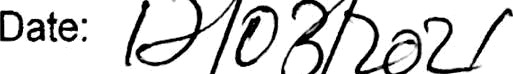 Date: 12/03/2021